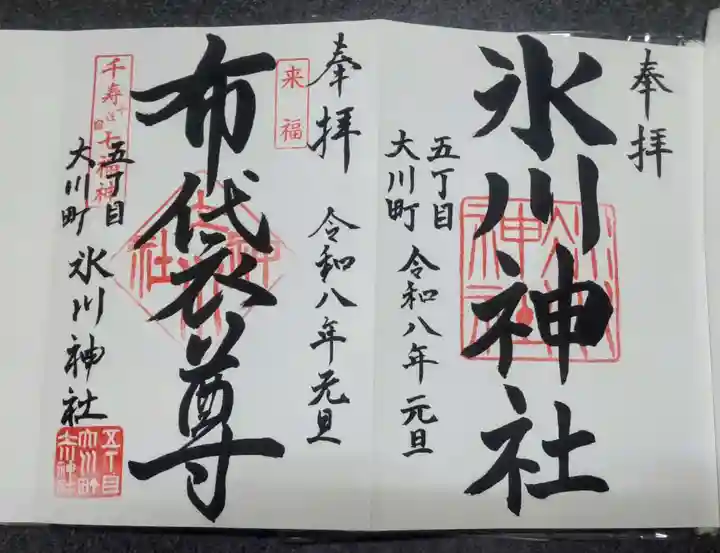 奉拝
氷川神社
五丁目
大川町
令和八年元旦
奉拝
令和八年元旦
来福
布袋尊
千寿
七福神
五丁目
大川町
氷川神社
五丁目
大川町
氷川神社